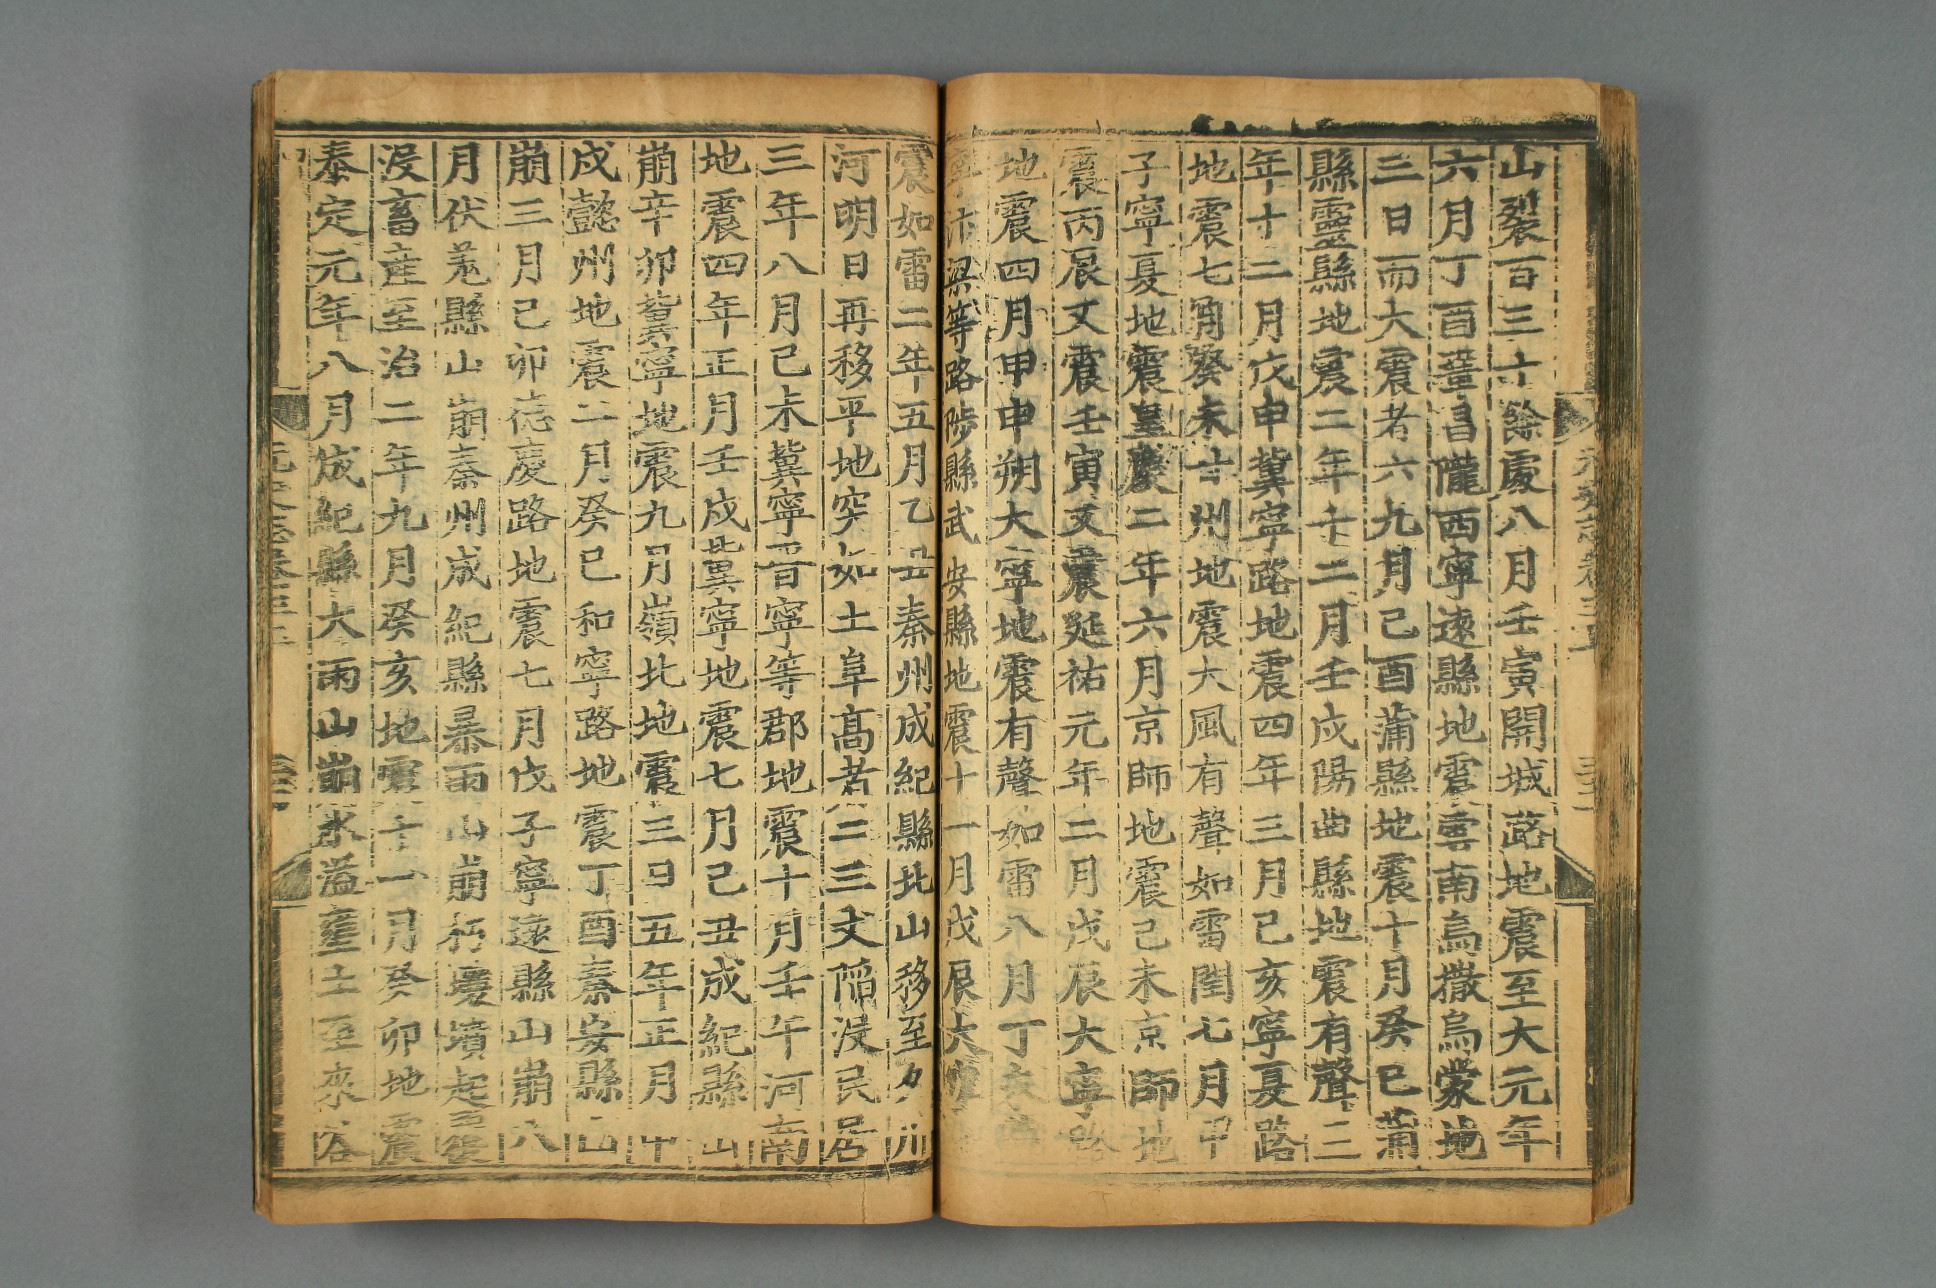 山裂百三十餘處八月壬寅開城路地震至大元年
六月丁酉鞏昌隴西寧遠縣地震雲南烏撒烏蒙地
三日而大震者六九月己酉蒲縣地震十月癸巳蒲
縣靈縣地震二年十二月壬戌陽曲縣地震有聲三
年十二月戊申冀寧路地震四年三月己亥寧夏路
地震七月癸未甘州地震大風有聲如雷閏七月甲
子寧夏地震皇慶二年六月京師地震己未京師地
震丙辰又震壬寅又震延祐元年二月戊辰大寧路
地震四月甲申朔大寧地震有聲如雷八月丁未冀
寧汴梁等路陟縣武安縣地震十一月戊辰大寧
震如雷二年五月乙丑秦州成紀縣北山移至夕川
河明日再移平地突如土阜高者二三丈陷沒民居
三年八月己未冀寧晉寧等郡地震十月壬午河南
地震四年正月壬戌冀寧地震七月己丑成紀縣山
崩辛卯冀寧地震九月嶺北地震三日五年正月甲
戌懿州地震二月癸巳和寧路地震丁酉秦安縣山
崩三月己卯德慶路地震七月戊子寧遠縣山崩八
月伏羌縣山崩秦州成紀縣暴雨山崩朽壤墳起覆
沒畜産至治二年九月癸亥地震十一月癸卯地震
泰定元年八月成紀縣大雨山崩水溢壅土至來谷